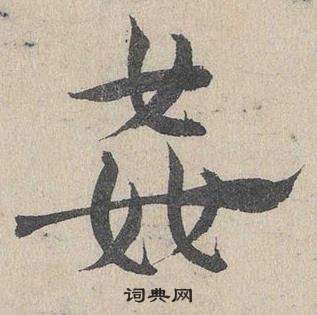 姦
词典网